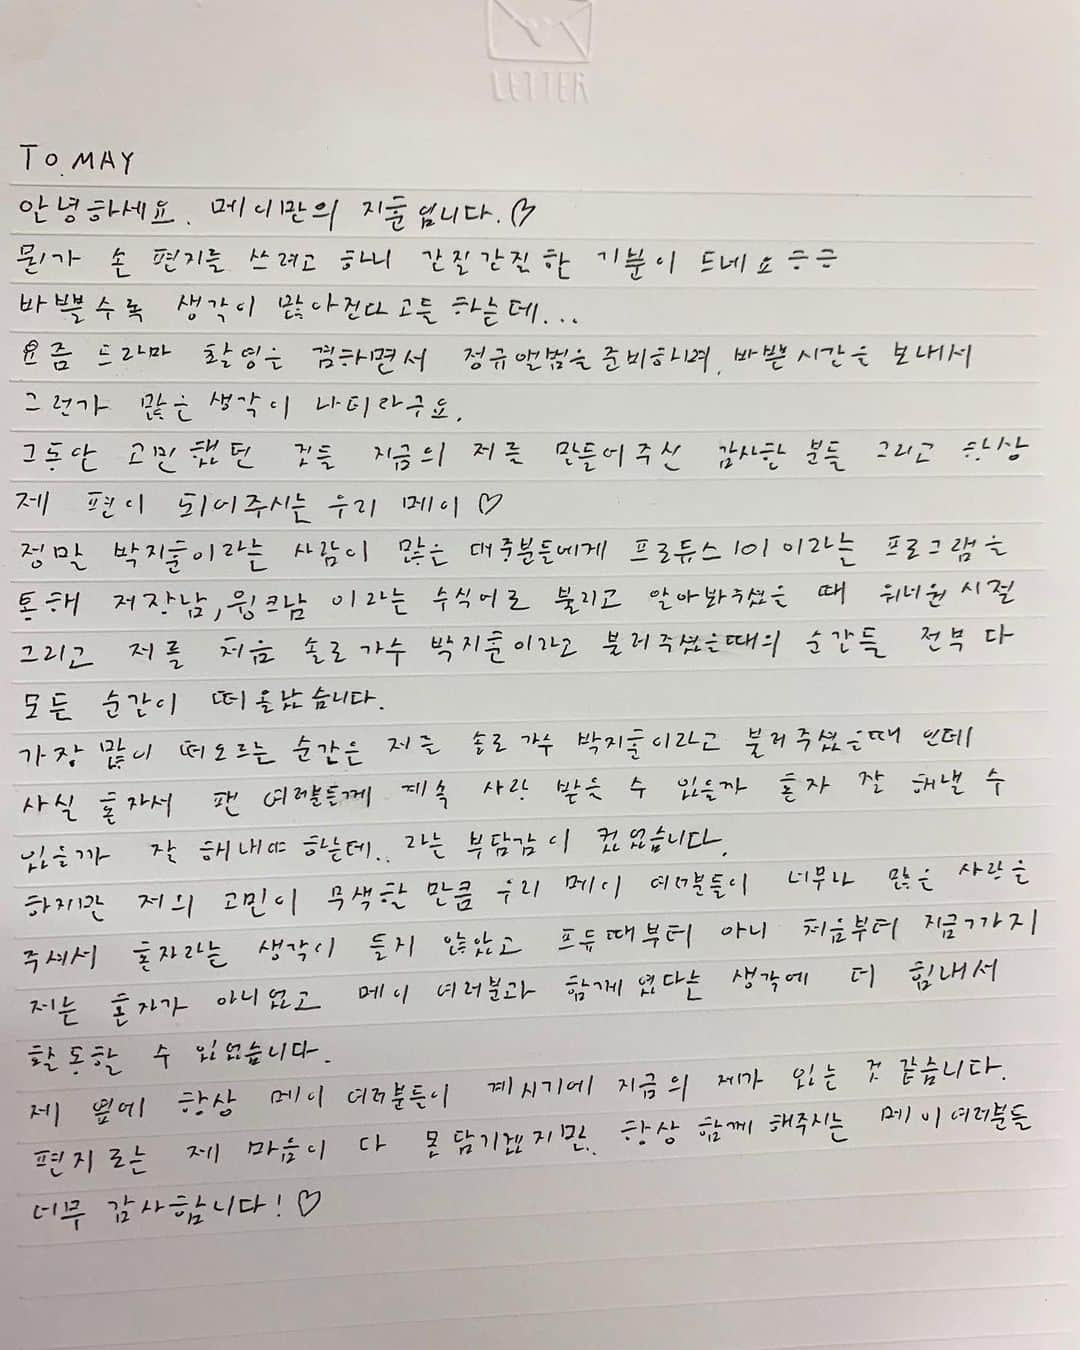 LETTER
TO.MAY
안녕하세요. 메이만의 지훈입니다.♡
뭔가 손 편지를 쓰려고 하니 간질간질한 기분이 드네요ㅎㅎ
바쁠수록 생각이 많아진다고들 하는데...
요즘 드라마 촬영을 겸하면서 정규앨범을 준비하며, 바쁜시간을 보내서
그런가 많은 생각이 나더라구요.
그동안 고민했던 것들 지금의 저를 만들어주신 감사한 분들 그리고 항상
제 편이 되어주시는 우리 메이♡
정말 박지훈이라는 사람이 많은 대중분들에게 프로듀스101이라는 프로그램을
통해 저장남,윙크남 이라는 수식어로 불리고 알아봐주셨을 때 워너원 시절
그리고 저를 처음 솔로가수 박지훈이라고 불러주셨을때의 순간들 전부 다
모든 순간이 떠올랐습니다.
가장 많이 떠오르는 순간은 저를 솔로 가수 박지훈이라고 불러주셨을때 인데
사실 혼자서 팬 여러분들께 계속 사랑 받을 수 있을까 혼자 잘 해낼 수
있을까 잘 해내야 하는데.. 라는 부담감이 컸었습니다.
하지만 저의 고민이 무색할 만큼 우리 메이 여러분들이 너무나 많은 사랑을
주셔서 혼자라는 생각이 들지 않았고 프듀때부터 아니 처음부터 지금까지
저는 혼자가 아니었고 메이 여러분과 함께였다는 생각에 더 힘내서
활동할 수 있었습니다.
제 옆에 항상 메이 여러분들이 계시기에 지금의 제가 있는 것 같습니다.
편지로는 제 마음이 다 못담기겠지만. 항상 함께 해주시는 메이여러분들
너무 감사합니다!♡